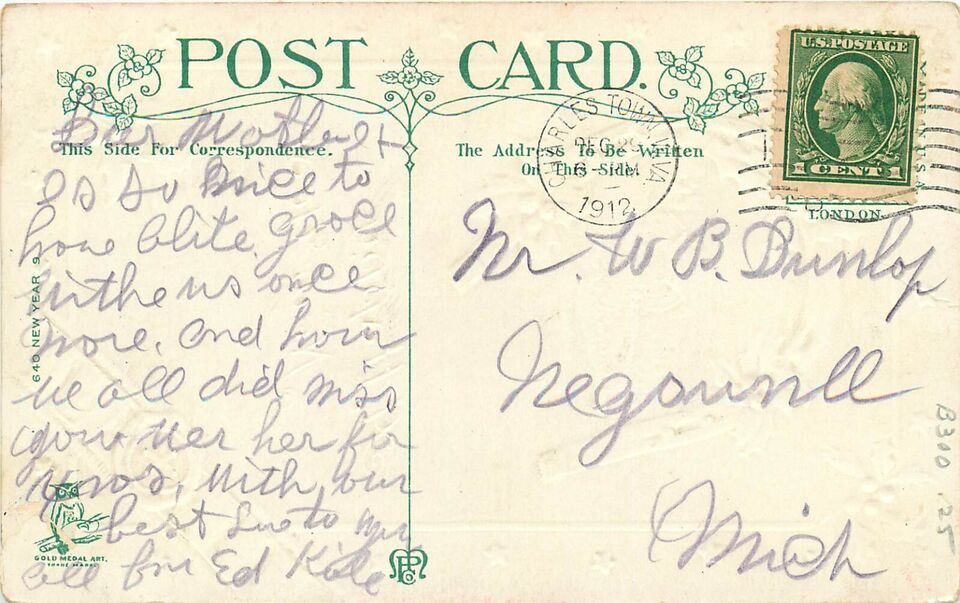 POST CARD.
U.S. POSTAGE
1 CENT
MADE IN U.S.A.
LONDON
This Side For Correspondence.
The Address To Be Written
On This Side.
CHARLES TOWN, W.VA
DEC 2
6-PM
1912
Dear Mother
es so nice to
have Grace
withe us once
more. and how
we all did miss
her for
Xmas. With our
best Love to you
all from Ed
Mr. W B. Dunlop
Mich
640 NEW YEAR 9
GOLD MEDAL ART.
TRADE MARK.
B300 25